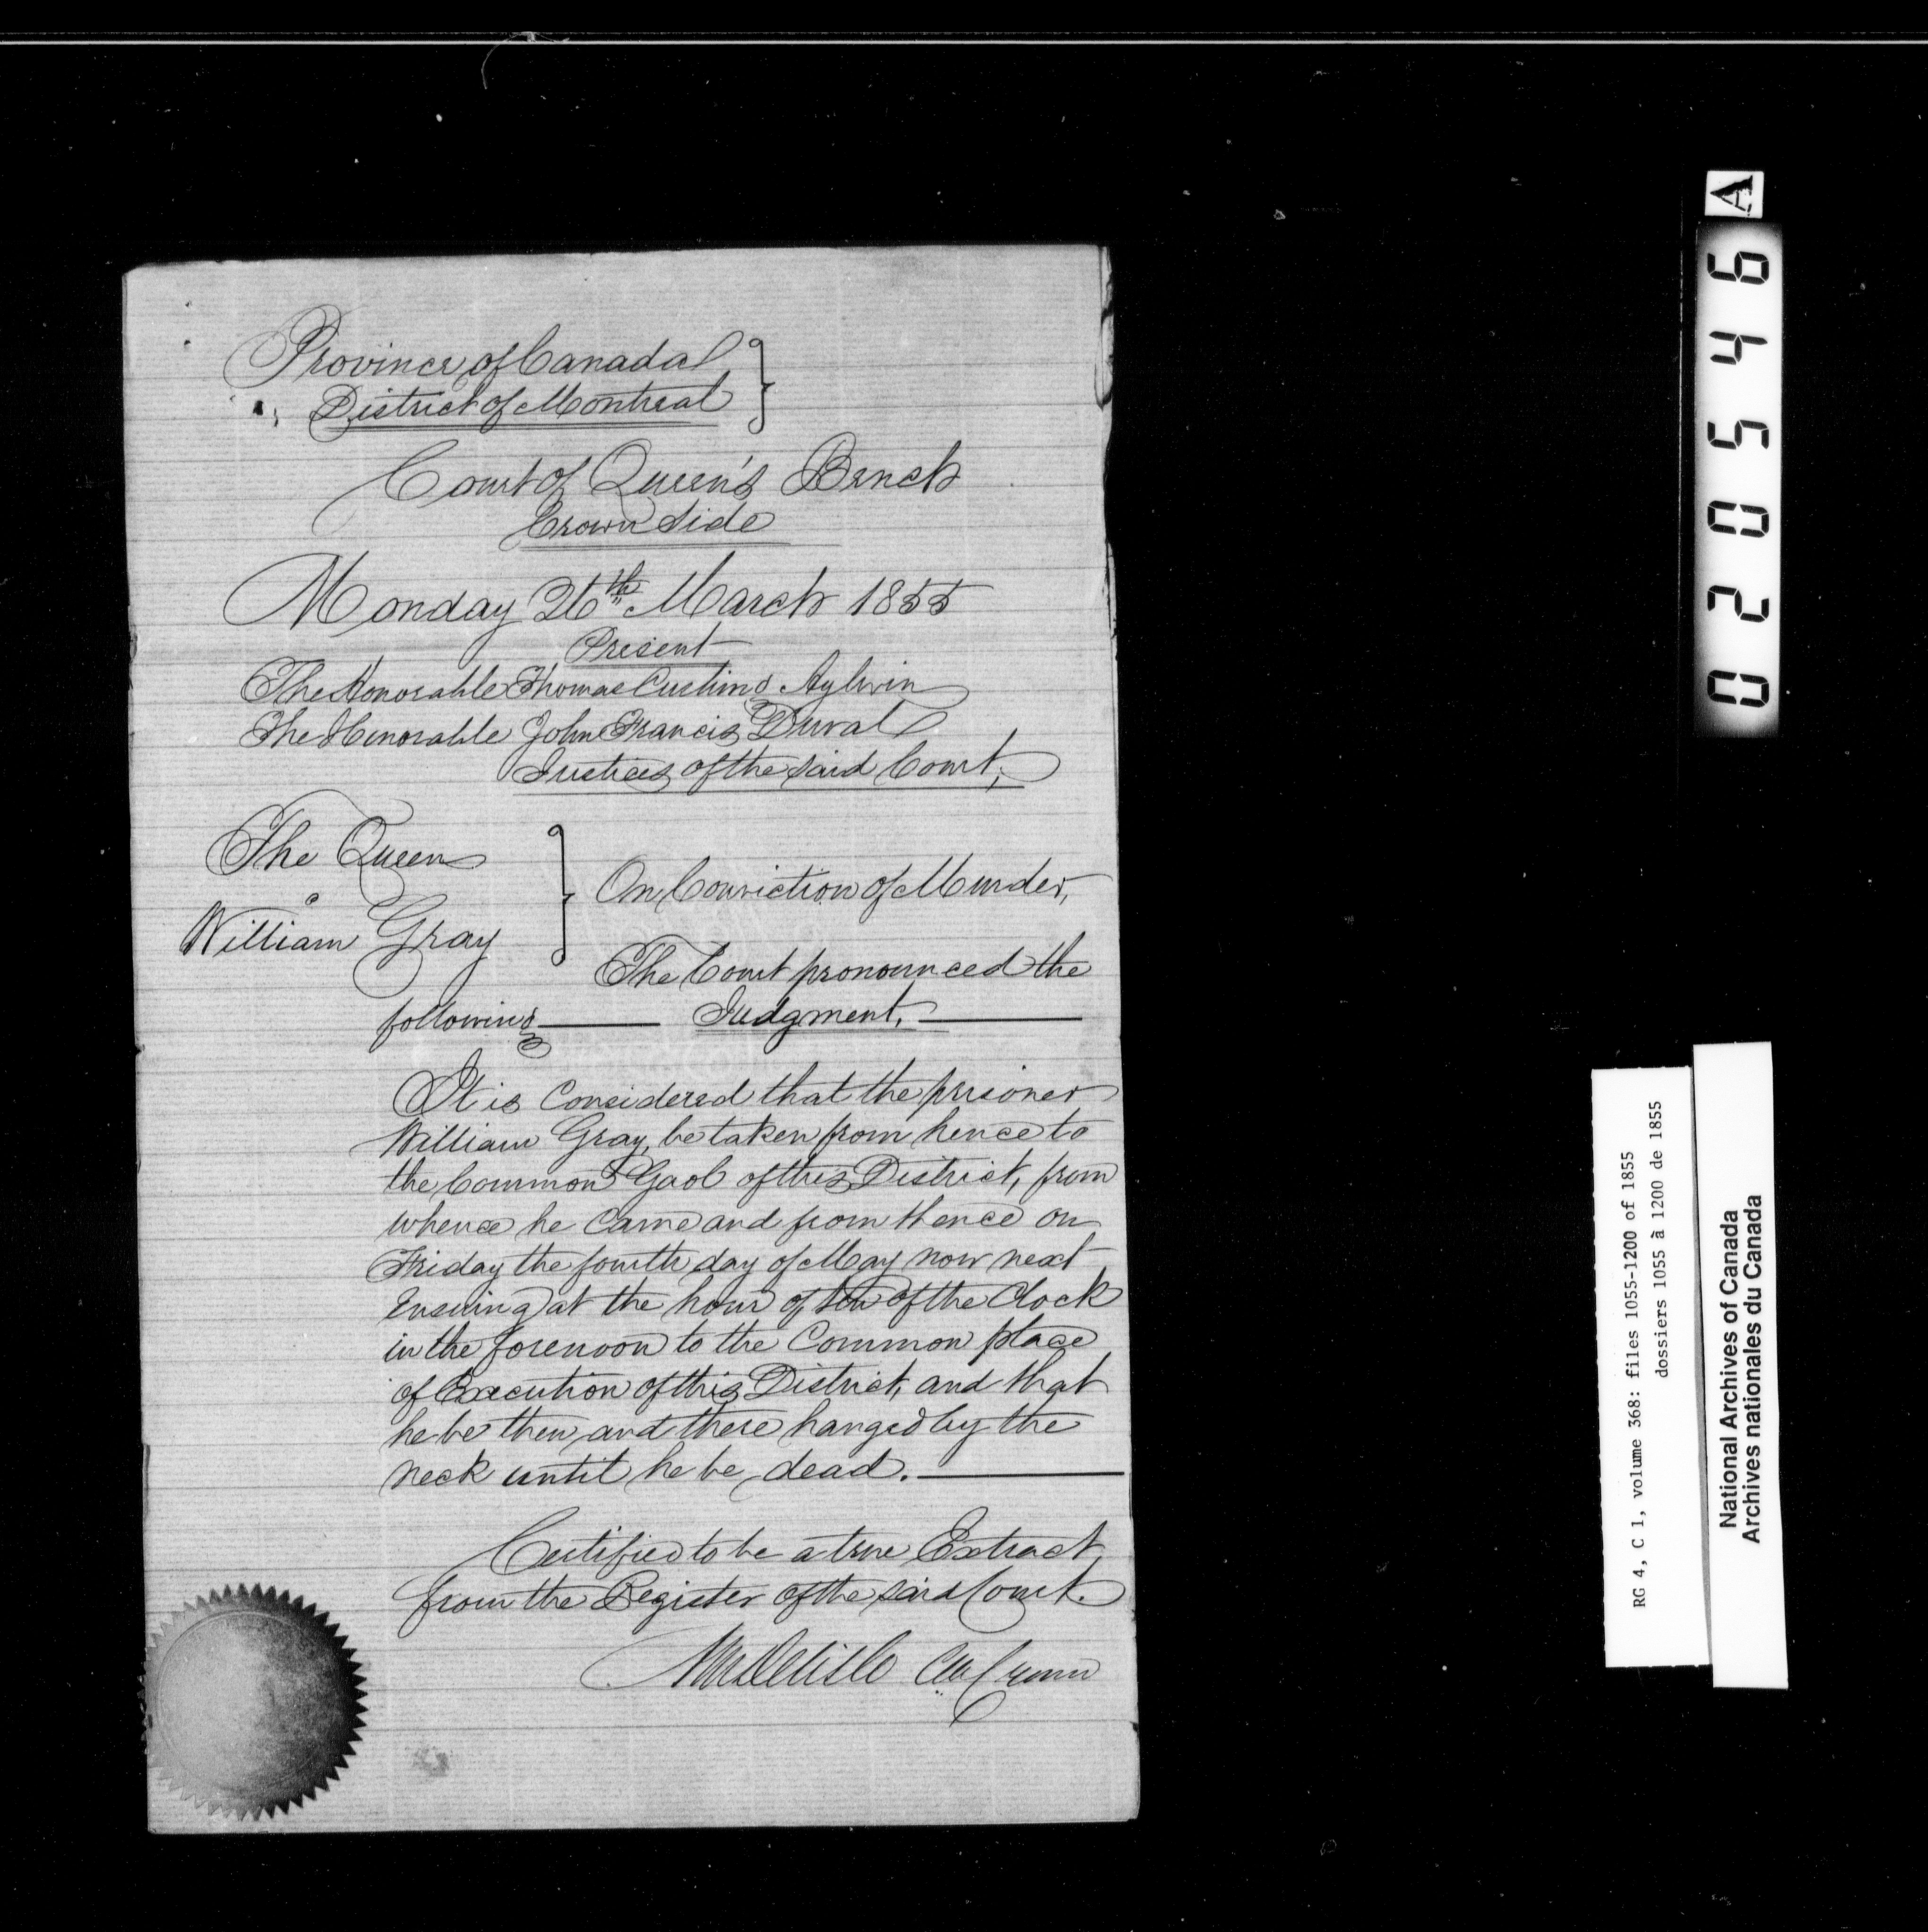 Province of Canada
District of Montreal
Court of Queen's Bench
Crown Side
Monday 26th March 1855
Present
The Honorable Thomas Cushing Aylwin
The Honorable John Francis Duval
Justices of the said Court,
The Queen
William Gray
On Conviction of Murder,
The Court pronounced the
following Judgment,
It is Considered that the prisoner
William Gray, be taken from hence to
the Common Gaol of this District, from
whence he Came and from thence on
Friday the fourth day of May now next
Ensuing at the hour of ten of the Clock
in the forenoon to the Common place
of Execution of this District, and that
he be then and there hanged by the
neck until he be dead.
Certified to be a true Extract
from the Register of the said Court.
Delisle
A
020546
RG 4, C 1, volume 368: files 1055-1200 of 1855
dossiers 1055 à 1200 de 1855
National Archives of Canada
Archives nationales du Canada